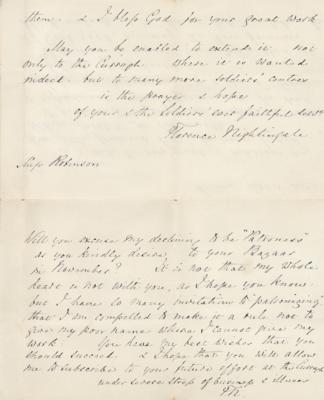 them. & I bless God for your great work
May you be enabled to extend it not
only to the Curragh where it is wanted
indeed. but to many more Soldiers' centres
is the prayer & hope
of your & the Soldiers' ever faithful Servt
Florence Nightingale
Miss Robinson
Will you excuse my declining to be "Patroness"
as you kindly desire, to your Bazaar
in November? It is not that my whole
heart is not with you, as I hope you know.
but I have so many invitations to "patronizing"
that I am compelled to make it a rule not to
give my poor name where I cannot give my
work. You have my best wishes that you
should succeed. & I hope that you will allow
me to subscribe to your future effort at the Curragh
under severe stress of business & illness
FN.